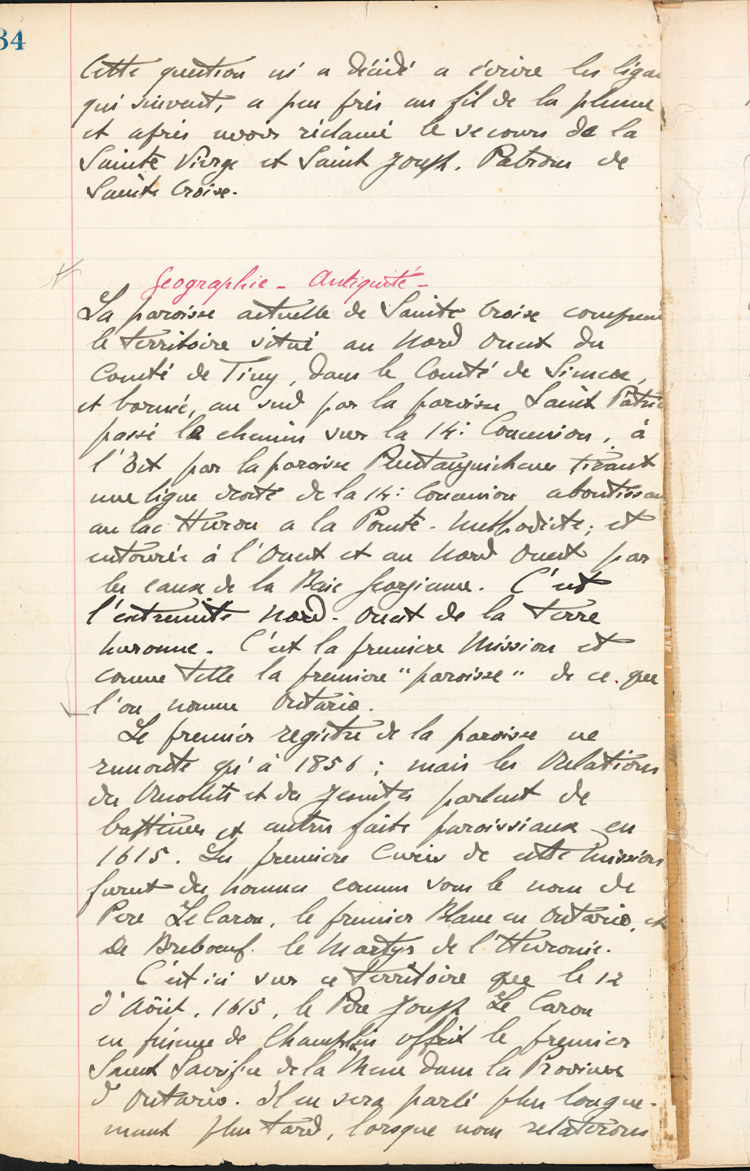 34
Cette question m'a décidé a écrire les lignes
qui suivent, a peu près au fil de la plume
et après avoir réclamé le secours de la
Sainte Vierge et Saint Joseph. Patrons de
Sainte Croix.
Geographie - Antiquité -
La paroisse actuelle de Sainte Croix comprend
le territoire situé au Nord Ouest du
Comté de Tiny, dans le Comté de Simcoe,
et borné, au sud par la paroisse Saint Patric
passé le chemin sur la 14: Concession, à
l'Est par la paroisse Penetanguishene tirant
une ligne droite de la 14: Concession aboutissant
au lac Huron a la Pointe - Methodiste; et
entourée à l'Ouest et au Nord Ouest par
les eaux de la Baie Georgienne. C'est
l'extremité Nord-Ouest de la terre
huronne. C'est la premiere Mission et
comme telle la premiere "paroisse" de ce que
l'on nomme Ontario.
Le premier registre de la paroisse ne
remonte qu'à 1856; mais les Relations
des Recollets et des Jesuites parlent de
baptêmes et autres faits paroissiaux en
1615. Les premiers Curés de cette mission
furent des hommes connus sous le nom de
Pere Le Caron, le premier Blanc en Ontario, et
De Breboeuf. le Martyr de l'Huronie.
C'est ici sur ce territoire que le 12
d'Aôut, 1615, le Père Joseph Le Caron
en présence de Champlain offrit le premier
Saint Sacrifice de la Messe dans la Province
d'Ontario. Il en sera parlé plus longue-
ment plus tard, lorsque nous relaterons